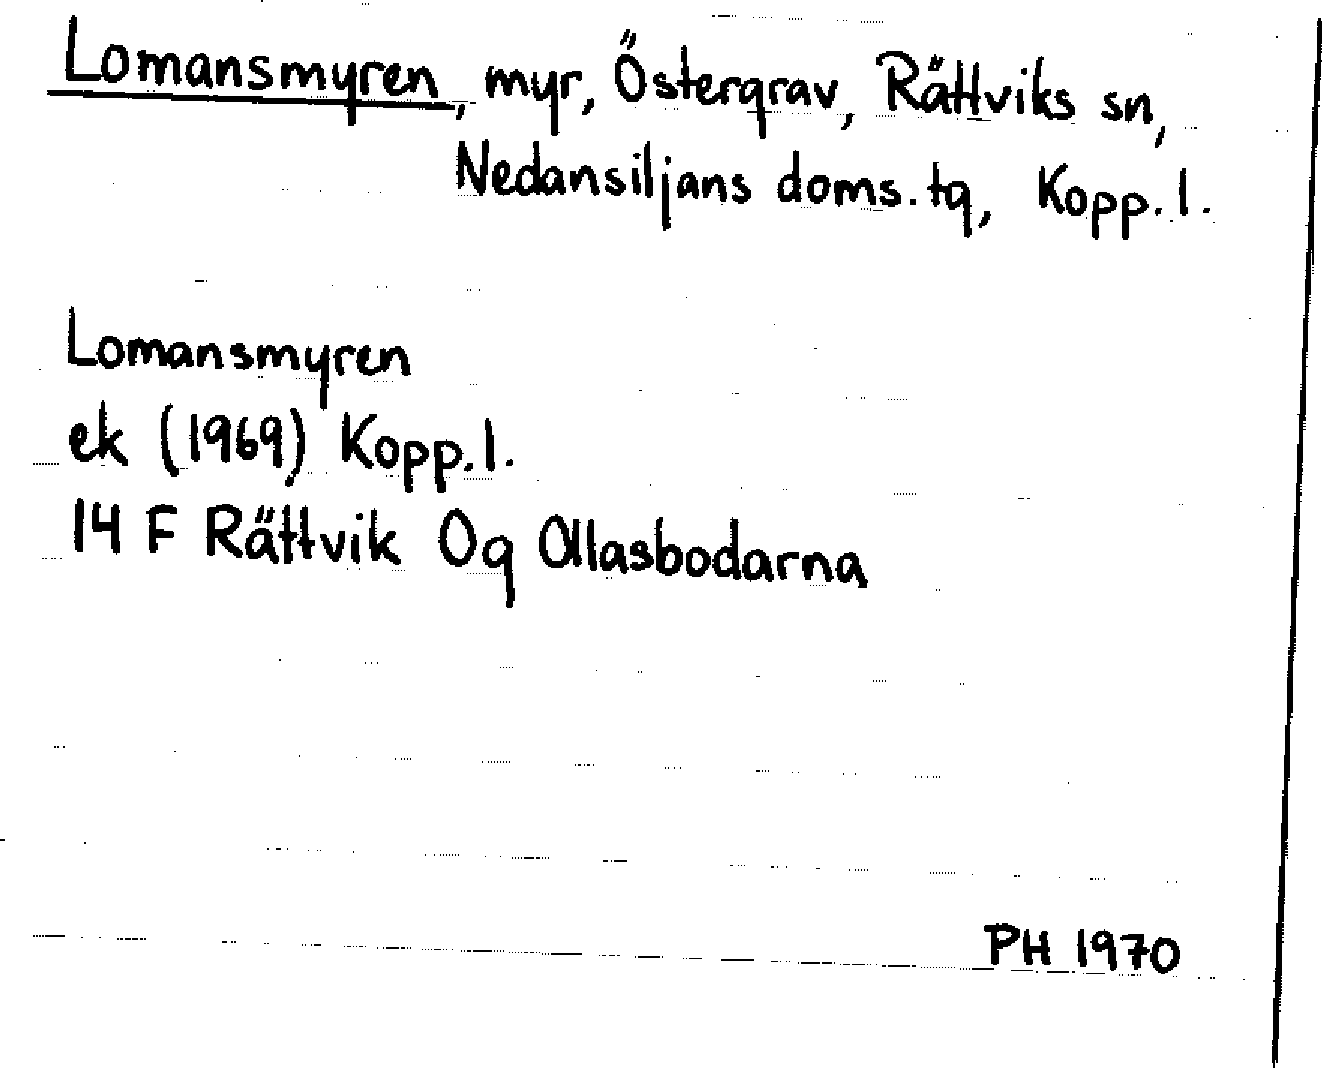 Lomansmyren, myr, Östergrav, Rättviks sn,
Nedansiljans doms.tg, Kopp.l.
Lomansmyren
ek (1969) Kopp.l.
14 F Rättvik 0g Ollasbodarna
PH 1970